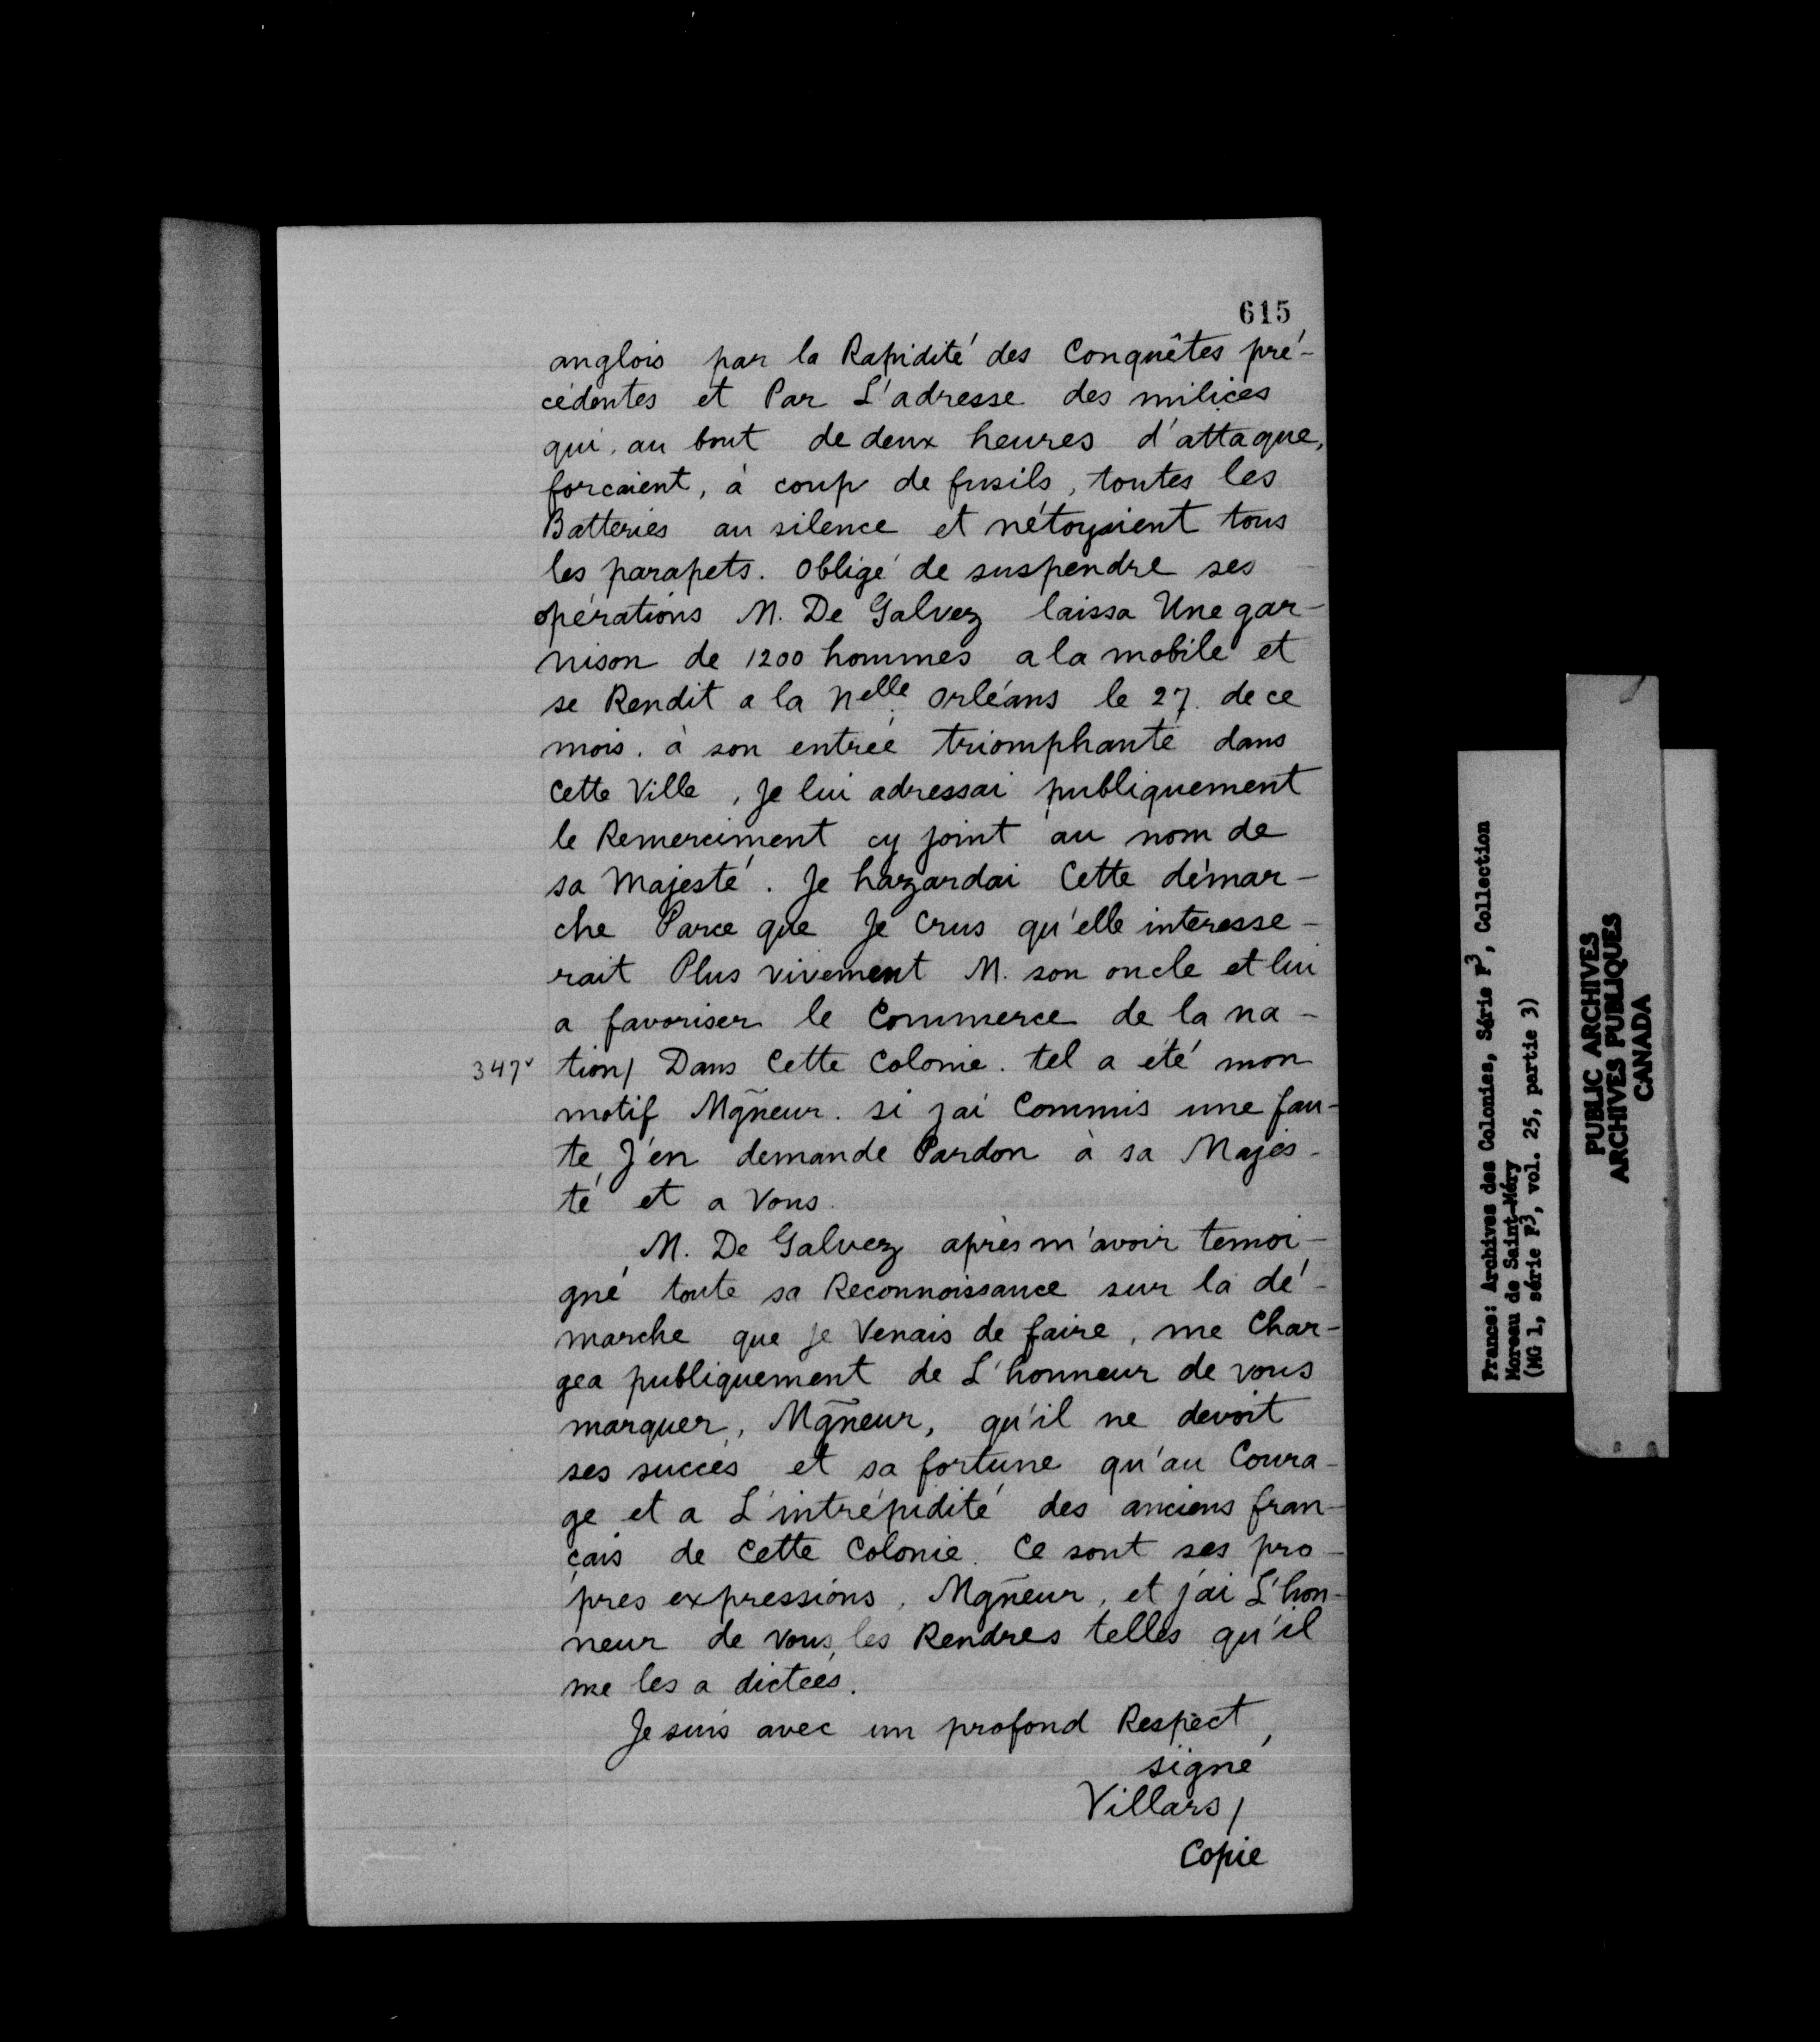 615
anglois par la Rapidité des Conquêtes pré-
cédentes et Par L'adresse des milices
qui, au bout de deux heures d'attaque,
forcaient, à coup de fusils, toutes les
Batteries au silence et nétoyaient tous
les parapets. obligé de suspendre ses
opérations M. De Galvez laissa Une gar-
nison de 1200 hommes a la mobile et
se Rendit a la Nelle. Orléans le 27. de ce
mois. à son entrée triomphante dans
Cette Ville, Je lui adressai publiquement
le Remerciment cy joint au nom de
sa Majesté. Je hazardai Cette démar-
che Parce que Je Crus qu'elle interesse-
rait Plus vivement M. son oncle et lui
a favoriser le Commerce de la na-
347v tion/ Dans Cette Colonie. tel a été mon
motif Mgn̄eur. si jai Commis une fau-
te, J'en demande Pardon à sa Majes-
té et a Vous.
M. De Galvez après m'avoir temoi-
gné toute sa Reconnoissance sur la dé-
marche que je Venais de faire, me Char-
gea publiquement de L'honneur de vous
marquer, Mgn̄eur, qu'il ne devoit
ses succès et sa fortune qu'au Coura-
ge et a L'intrépidité des anciens fran-
çais de Cette Colonie. Ce sont ses pro-
pres expressions, Mgn̄eur, et j'ai L'hon-
neur de vous les Rendres telles qu'il
me les a dictées.
Je suis avec un profond Respect,
signé
Villars/
Copie
France: Archives des Colonies, Série F3, Collection
Moreau de Saint-Méry
(MG 1, série F3, vol. 25, partie 3)
PUBLIC ARCHIVES
ARCHIVES PUBLIQUES
CANADA